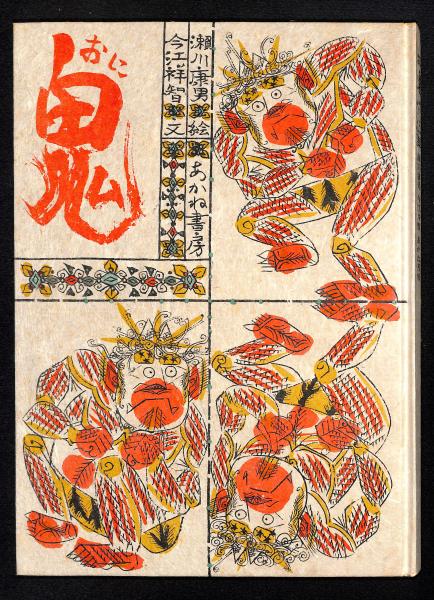 おに
鬼
瀬川康男 絵
今江祥智 文
あかね書房